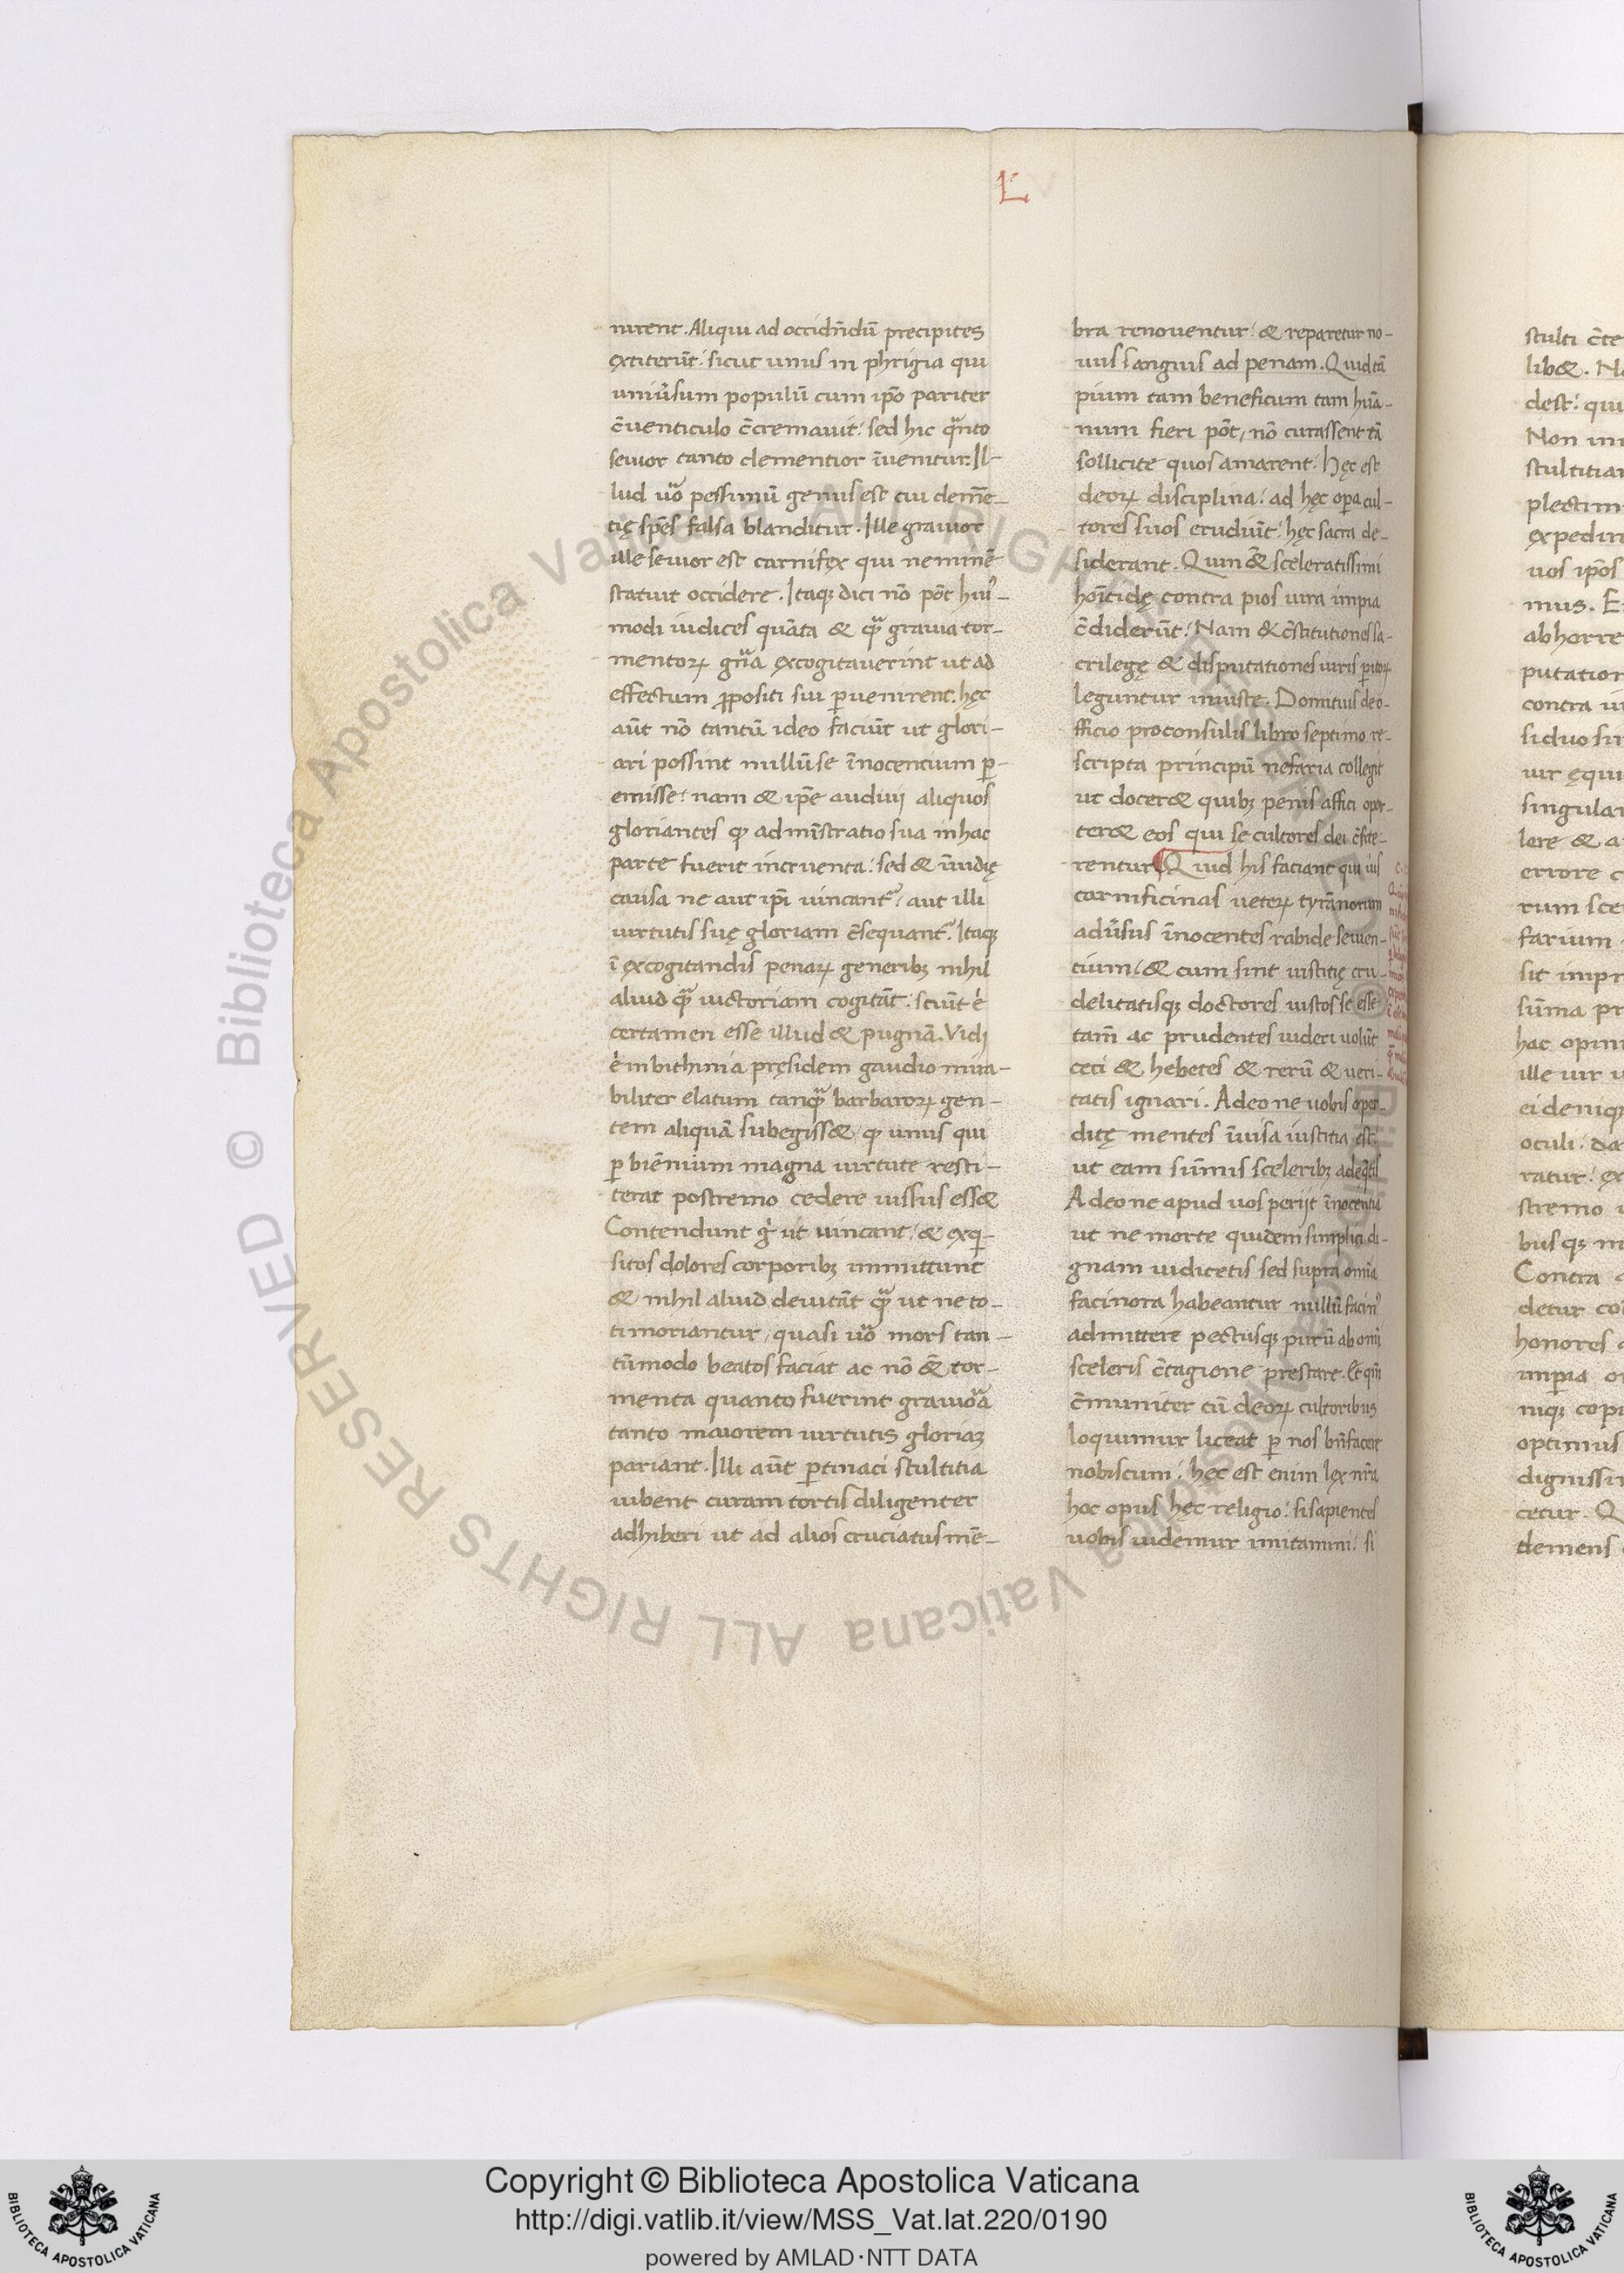 L
nirent. Aliqui ad occidn̄dū precipites
ęxtiterūt: sicut unus in phrigia qui
uniūsum populū cum ip̄o pariter
c̄uenticulo c̄cremauit: sed hic qͣnto
seuior tanto clementior īuenitur. Il-
lud uō pessimū genus est cui clemē-
tię sp̄es falsa blanditur. Ille grauior
ille seuior est carnifęx qui neminē
statuit occidere. Itaqꝫ dici nō pōt huiꝰ-
modi iudices quāta & qͣ grauia tor-
mentoꝝ gn̄a ęxcogitauerint ut ad
effectum ꝓpositi sui ꝑuenirent. hęc
aūt nō tantū ideo faciūt ut glori-
ari possint nullū se īnocentium ꝑ-
emisse: nam & ip̄e audiui aliquos
gloriantes ꝙ admīstratio sua in hac
parte fuerit incruenta: sed & īuidię
causa ne aut ip̄i uincantᷣ / aut illi
uirtutis suę gloriam c̄sequantᷣ. Itaqꝫ
ī ęxcogitandis penaꝝ generibꝫ nihil
aliud qͣ uictoriam cogitāt: sciūt .n.
certamen esse illud & pugnā. Vidi
ė in bithinia pręsidem gaudio mira-
biliter elatum tanqͣ barbaroꝝ gen-
tem aliquā subegiss& / ꝙ unus qui
ꝑ biēnium magna uirtute resti-
terat postremo cedere uissus ess&
Contendunt gͦ ut uincant / & ęxqͥ-
sitos dolores corporibꝫ immittunt
& nihil aliud deuitāt qͣ ut ne to-
ti moriantur / quasi uō mors tan-
tūmodo beatos faciat ac nō &̄ tor-
menta quanto fuerint grauioā
tanto maiorem uirtutis gloriaꝫ
pariant. Illi aūt ꝑtinaci stultitia
iubent curam tortis diligenter
adhiberi ut ad alios cruciatus mē-
bra renouentur: & reparetur no-
uus sanguis ad penam. Quid tā
pium tam beneficum tam hūa-
num fieri pōt / nō curassent tā
sollicite quos amarent: Hęc est
deoꝝ disciplina: ad hęc oꝑa cul-
tores suos erudiūt: hęc sacra de-
siderant. Quin &̄ sceleratissimi
hoīcidę contra pios iura impia
c̄diderūt: Nam & c̄stitutiones sa-
crilegę & disputationes iuris ꝑitoꝝ
leguntur iniuste. Domitius de o-
fficio proconsulis libro septimo re-
scripta principū nefaria collegit
ut docer& quibꝫ penis affici opor-
ter& eos qui se cultores dei c̄fite-
rentur Quid his faciant qui ius
carnificinas ueteꝝ tyrānorum
adūsus īnocentes rabide seuien-
tium: & cum sint iustitię cru-
delitatisqꝫ doctores iustos se esse
tam̄ ac prudentes uideri uolūt
ceci & hebetes & rerū & ueri-
tatis ignari. Adeo ne uobis o per-
ditę mentes īuisa iustitia est:
ut eam sūmis sceleribꝫ adeqͣtis
Adeo ne apud uos perijt īnocentia
ut ne morte quidem simplici di-
gnam iudicetis sed supra omīa
facinora habeantur nullū facinꝰ
admittere pectusqꝫ purū ab omī
sceleris c̄tagione prestare. Et qm̄
c̄muniter cū deoꝝ cultoribus
loquimur liceat ꝑ nos bn̄ facere
nobiscum: hęc est enim lęx nr̄a
hoc opus hęc religio: si sapientes
uobis uidemur imitamini: si
Copyright © Biblioteca Apostolica Vaticana
http://digi.vatlib.it/view/MSS_Vat.lat.220/0190
powered by AMLAD·NTT DATA